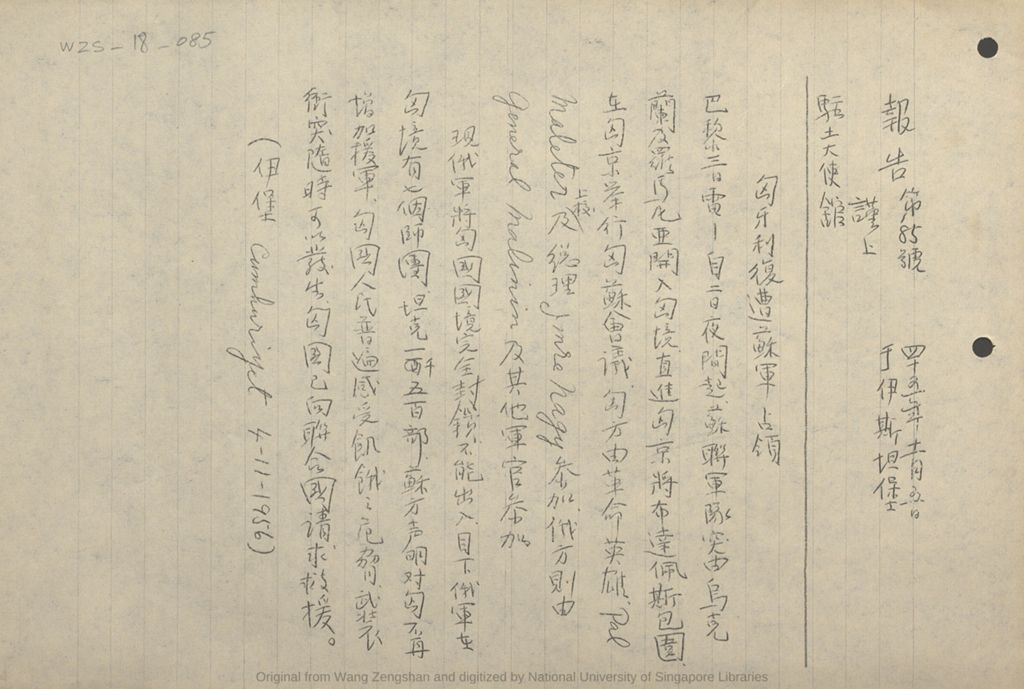 WZS-18-085
報告 第85號
謹上
四十五年十一月五日
于伊斯坦堡
駐土大使館
匈牙利復遭蘇軍占領
巴黎三日電—自二日夜間起蘇聯軍隊突由烏克
蘭及羅馬尼亞開入匈境直進匈京將布達佩斯包圍
在匈京举行匈蘇會議匈方由革命英雄Pal
Maleter上校及總理Jmre Nagy参加.俄方則由
General Malinin及其他軍官参加
現俄軍將匈國國境完全封鎖不能出入.目下俄軍在
匈境有七個師團.坦克一千五百部.蘇方声明对匈不再
增加援軍.匈國人民普遍感受飢餓之危脅.武裝
衝突隨時可以發生.匈國已向聯合國請求救援。
(伊堡 Cumhuriyet 4-11-1956)
Original from Wang Zengshan and digitized by National University of Singapore Libraries